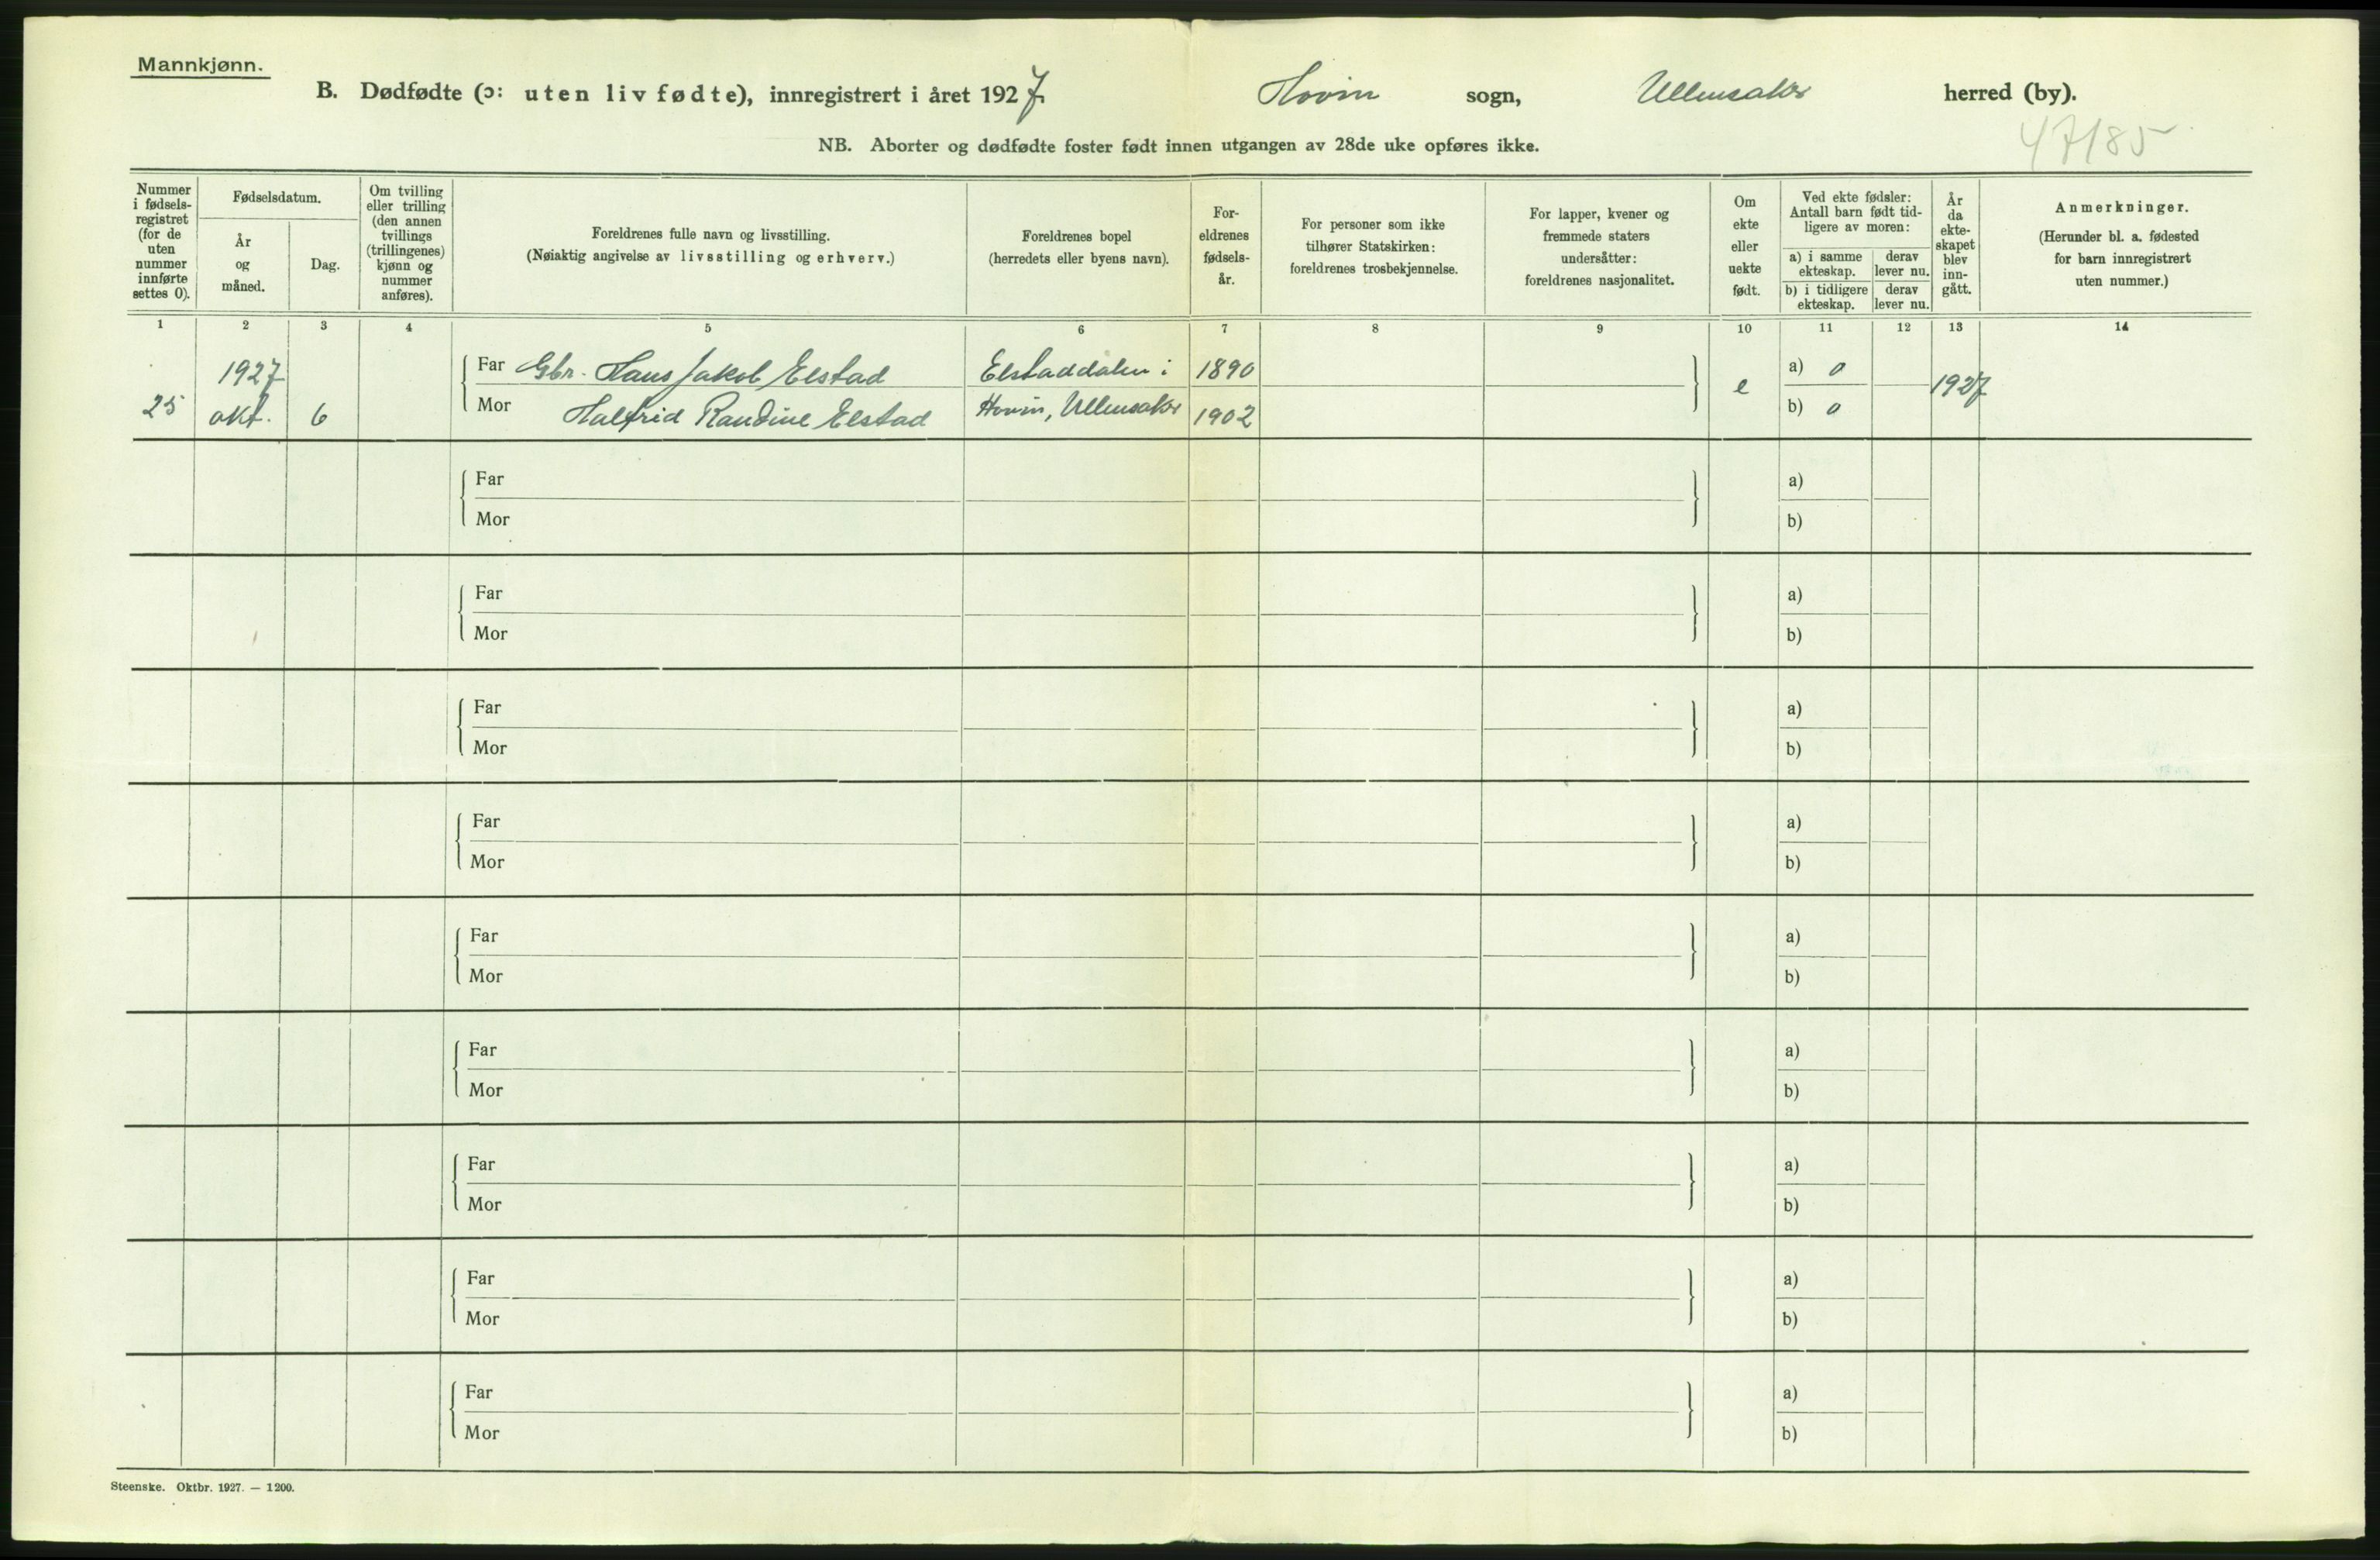 Mannkjønn.
B. Dødfødte (ɔ: uten liv fødte), innregistrert i året 1927 Hovin sogn, Ullensaker herred (by).
47185
NB. Aborter og dødfødte foster født innen utgangen av 28de uke opføres ikke.
Nummer
i fødsels-
registret
(for de
uten
nummer
innførte
settes 0).
Fødselsdatum.
År
og
måned.
Dag.
Om tvilling
eller trilling
(den annen
tvillings
(trillingenes)
kjønn og
nummer
anføres).
Foreldrenes fulle navn og livsstilling.
(Nøiaktig angivelse av livsstilling og erhverv.)
Foreldrenes bopel
(herredets eller byens navn).
For-
eldrenes
fødsels-
år.
For personer som ikke
tilhører Statskirken:
foreldrenes trosbekjennelse.
For lapper, kvener og
fremmede staters
undersåtter:
foreldrenes nasjonalitet.
Om
ekte
eller
uekte
født.
Ved ekte fødsler:
Antall barn født tid-
ligere av moren:
a) i samme
ekteskap.
derav
lever nu.
b) i tidligere
ekteskap.
derav
lever nu.
År
da
ekte-
skapet
blev
inn-
gått.
Anmerkninger.
(Herunder bl. a. fødested
for barn innregistrert
uten nummer.)
1 2 3 4 5 6 7 8 9 10 11 12 13 14
1927 Far Gbr. Hans Jakob Elstad Elstaddalen i 1890 a) 0
25 okt. 6 Mor Halfrid Randine Elstad Hovin, Ullensaker 1902 e b) 0 1927
Far a)
Mor b)
Far a)
Mor b)
Far a)
Mor b)
Far a)
Mor b)
Far a)
Mor b)
Far a)
Mor b)
Far a)
Mor b)
Far a)
Mor b)
Far a)
Mor b)
Steenske. Oktbr. 1927. — 1200.